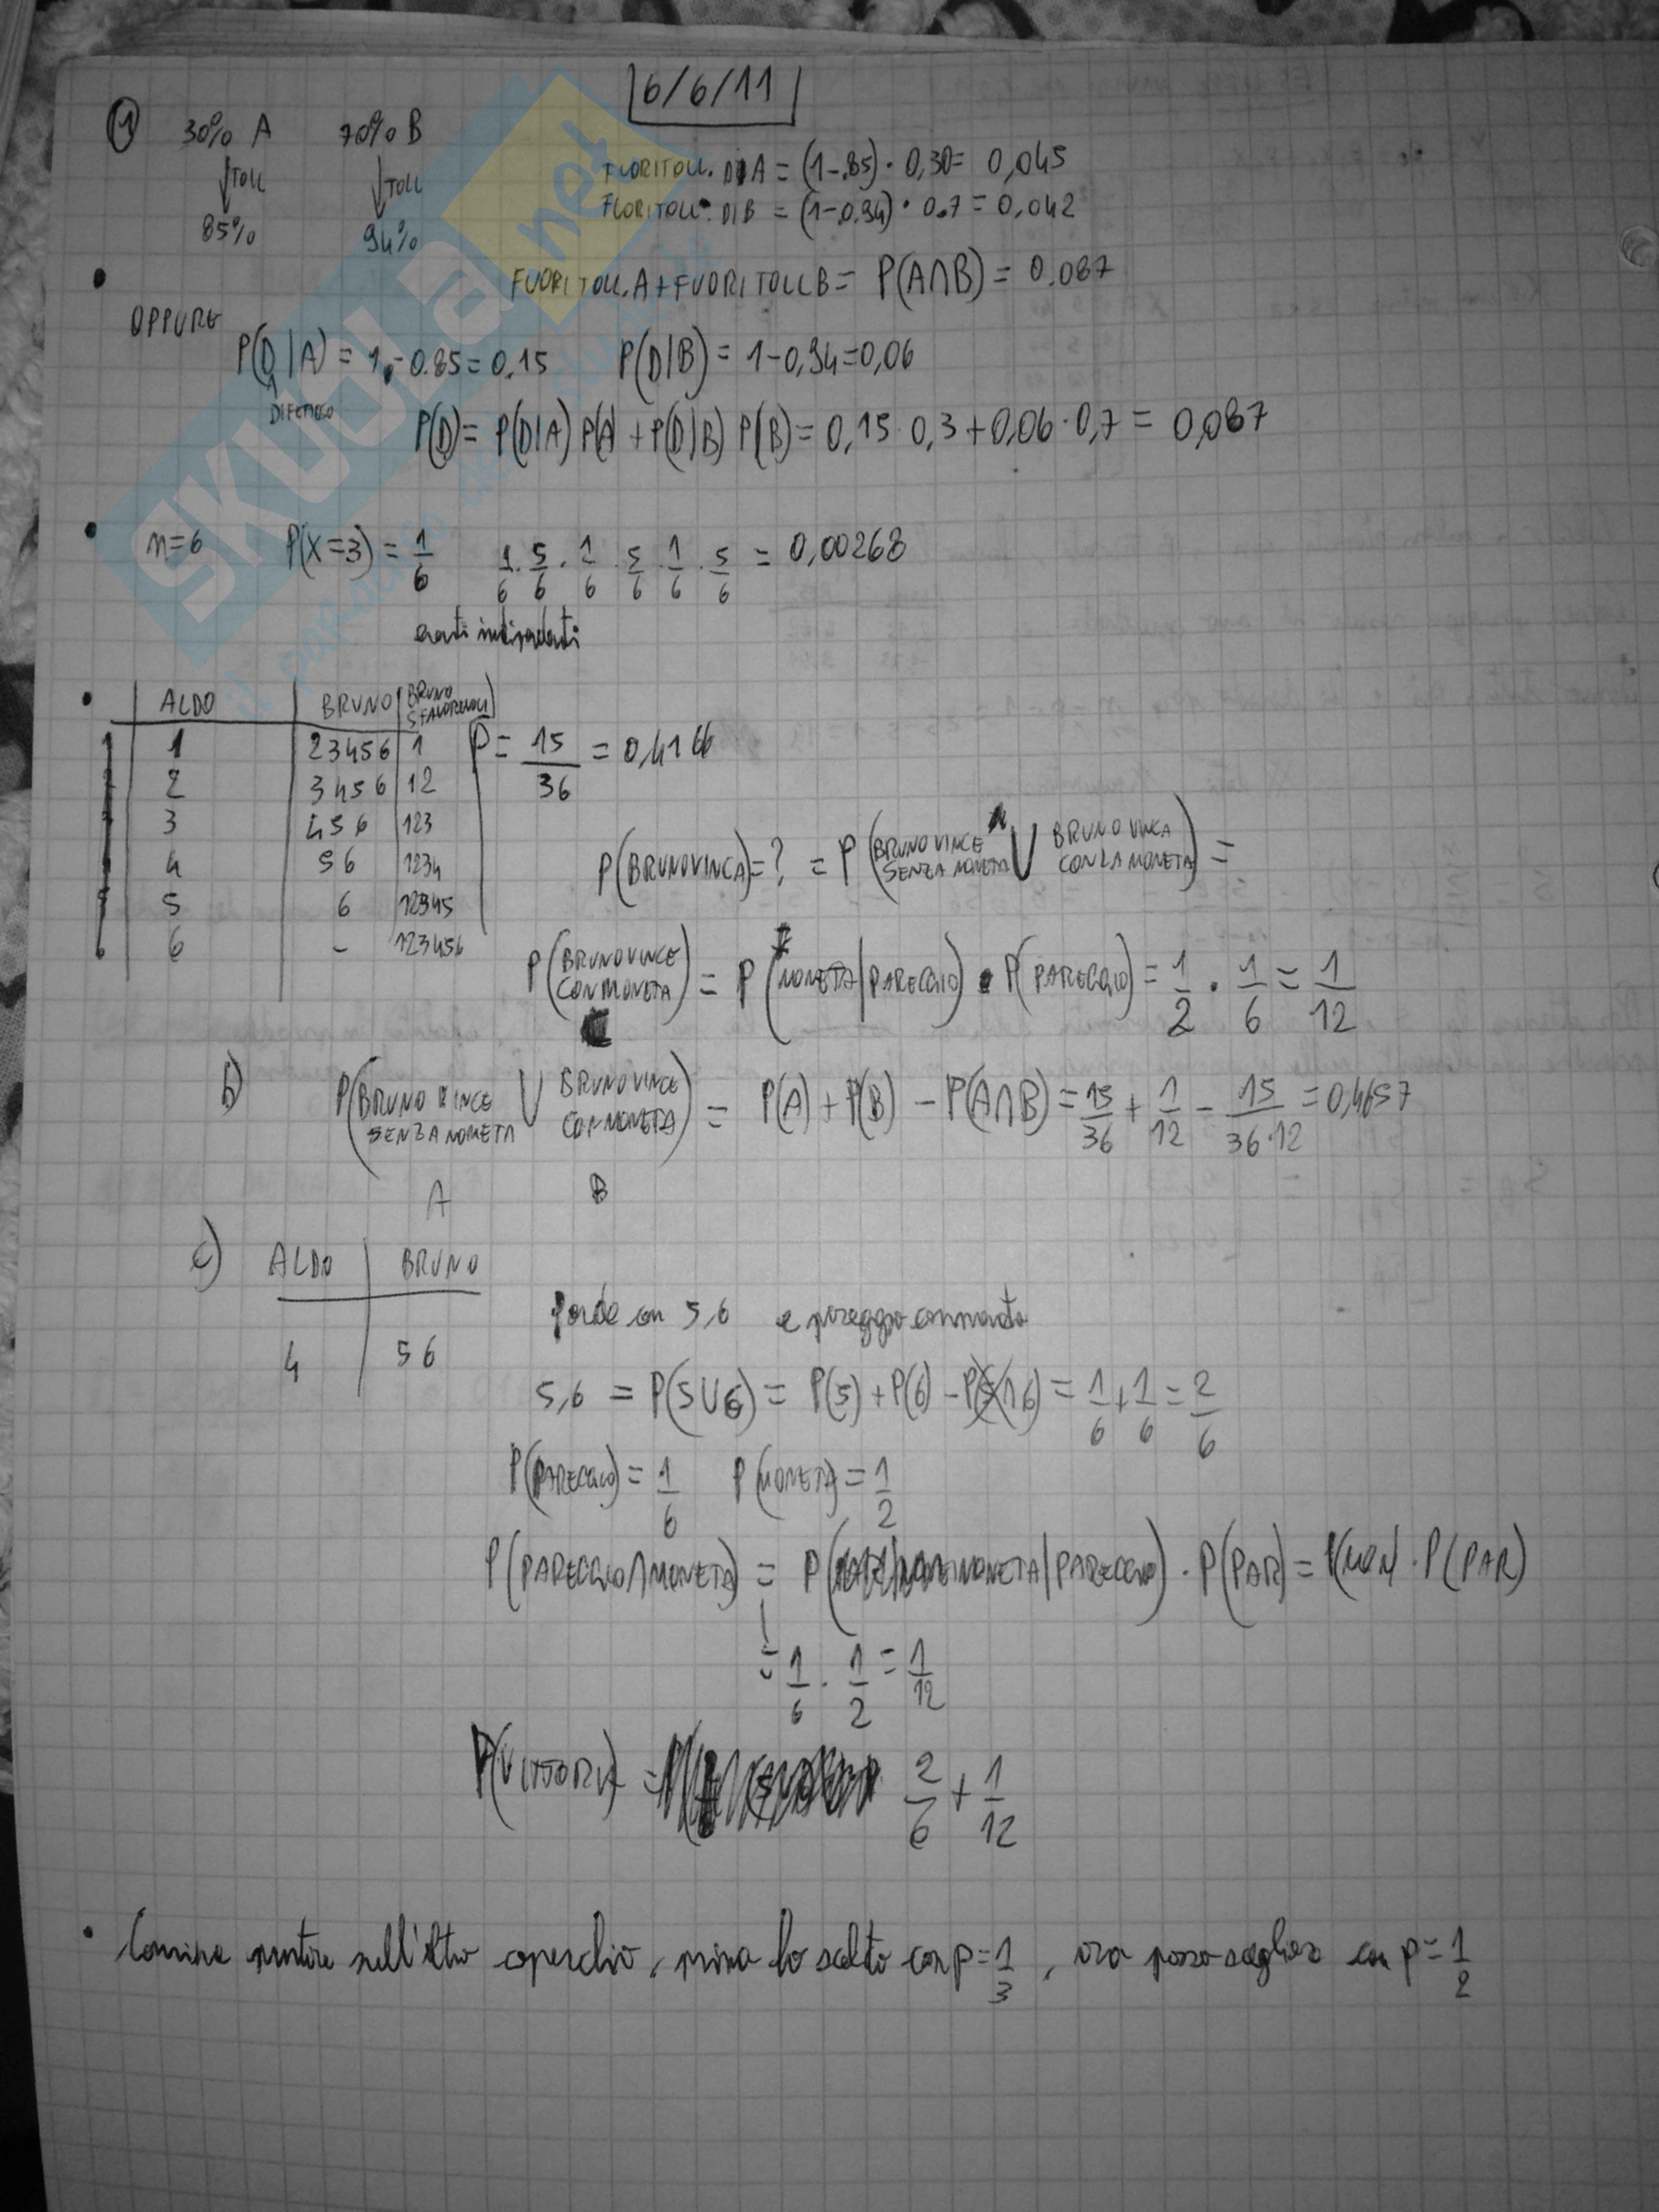 6/6/11
① 30% A 70% B
↓TOLL ↓TOLL
85% 94%
FUORI TOLL. DI A = (1-.85) · 0,30 = 0,045
FUORI TOLL. DI B = (1-0.94) · 0.7 = 0,042
FUORI TOLL. A + FUORI TOLL B = P(A∩B) = 0.087
OPPURE
P(D|A) = 1 - 0.85 = 0,15 P(D|B) = 1-0,94=0,06
DIFETTOSO
P(D) = P(D|A) P(A) + P(D|B) P(B) = 0,15 · 0,3 + 0,06 · 0,7 = 0,087
n=6 P(X=3) = 1/6 1/6 · 5/6 · 1/6 · 5/6 · 1/6 · 5/6 = 0,00268
eventi indipendenti
ALDO | BRUNO | BRUNO SFAVOREVOLI
1 | 23456 | 1
2 | 3456 | 12
3 | 456 | 123
4 | 56 | 1234
5 | 6 | 12345
6 | - | 123456
P = 15/36 = 0,4166
P(BRUNO VINCA) = ? = P(BRUNO VINCE SENZA MONETA ∪ BRUNO VINCA CON LA MONETA) =
P(BRUNO VINCE CON MONETA) = P(MONETA|PAREGGIO) · P(PAREGGIO) = 1/2 · 1/6 = 1/12
b) P(BRUNO VINCE SENZA MONETA ∪ BRUNO VINCE CON MONETA) = P(A) + P(B) - P(A∩B) = 15/36 + 1/12 - 15/36·12 = 0,4657
A B
c) ALDO | BRUNO
4 | 56
perde con 5,6 e pareggio con moneta
5,6 = P(5∪6) = P(5) + P(6) - P(5∩6) = 1/6 + 1/6 = 2/6
P(PAREGGIO) = 1/6 P(MONETA) = 1/2
P(PAREGGIO∩MONETA) = P(MONETA|PAREGGIO) · P(PAR) = P(MON) · P(PAR)
= 1/6 · 1/2 = 1/12
P(VITTORIA) = 2/6 + 1/12
Conviene puntare sull'altro coperchio, prima ho scelto con p=1/3, ora posso scegliere con p=1/2
SKUOLA.net